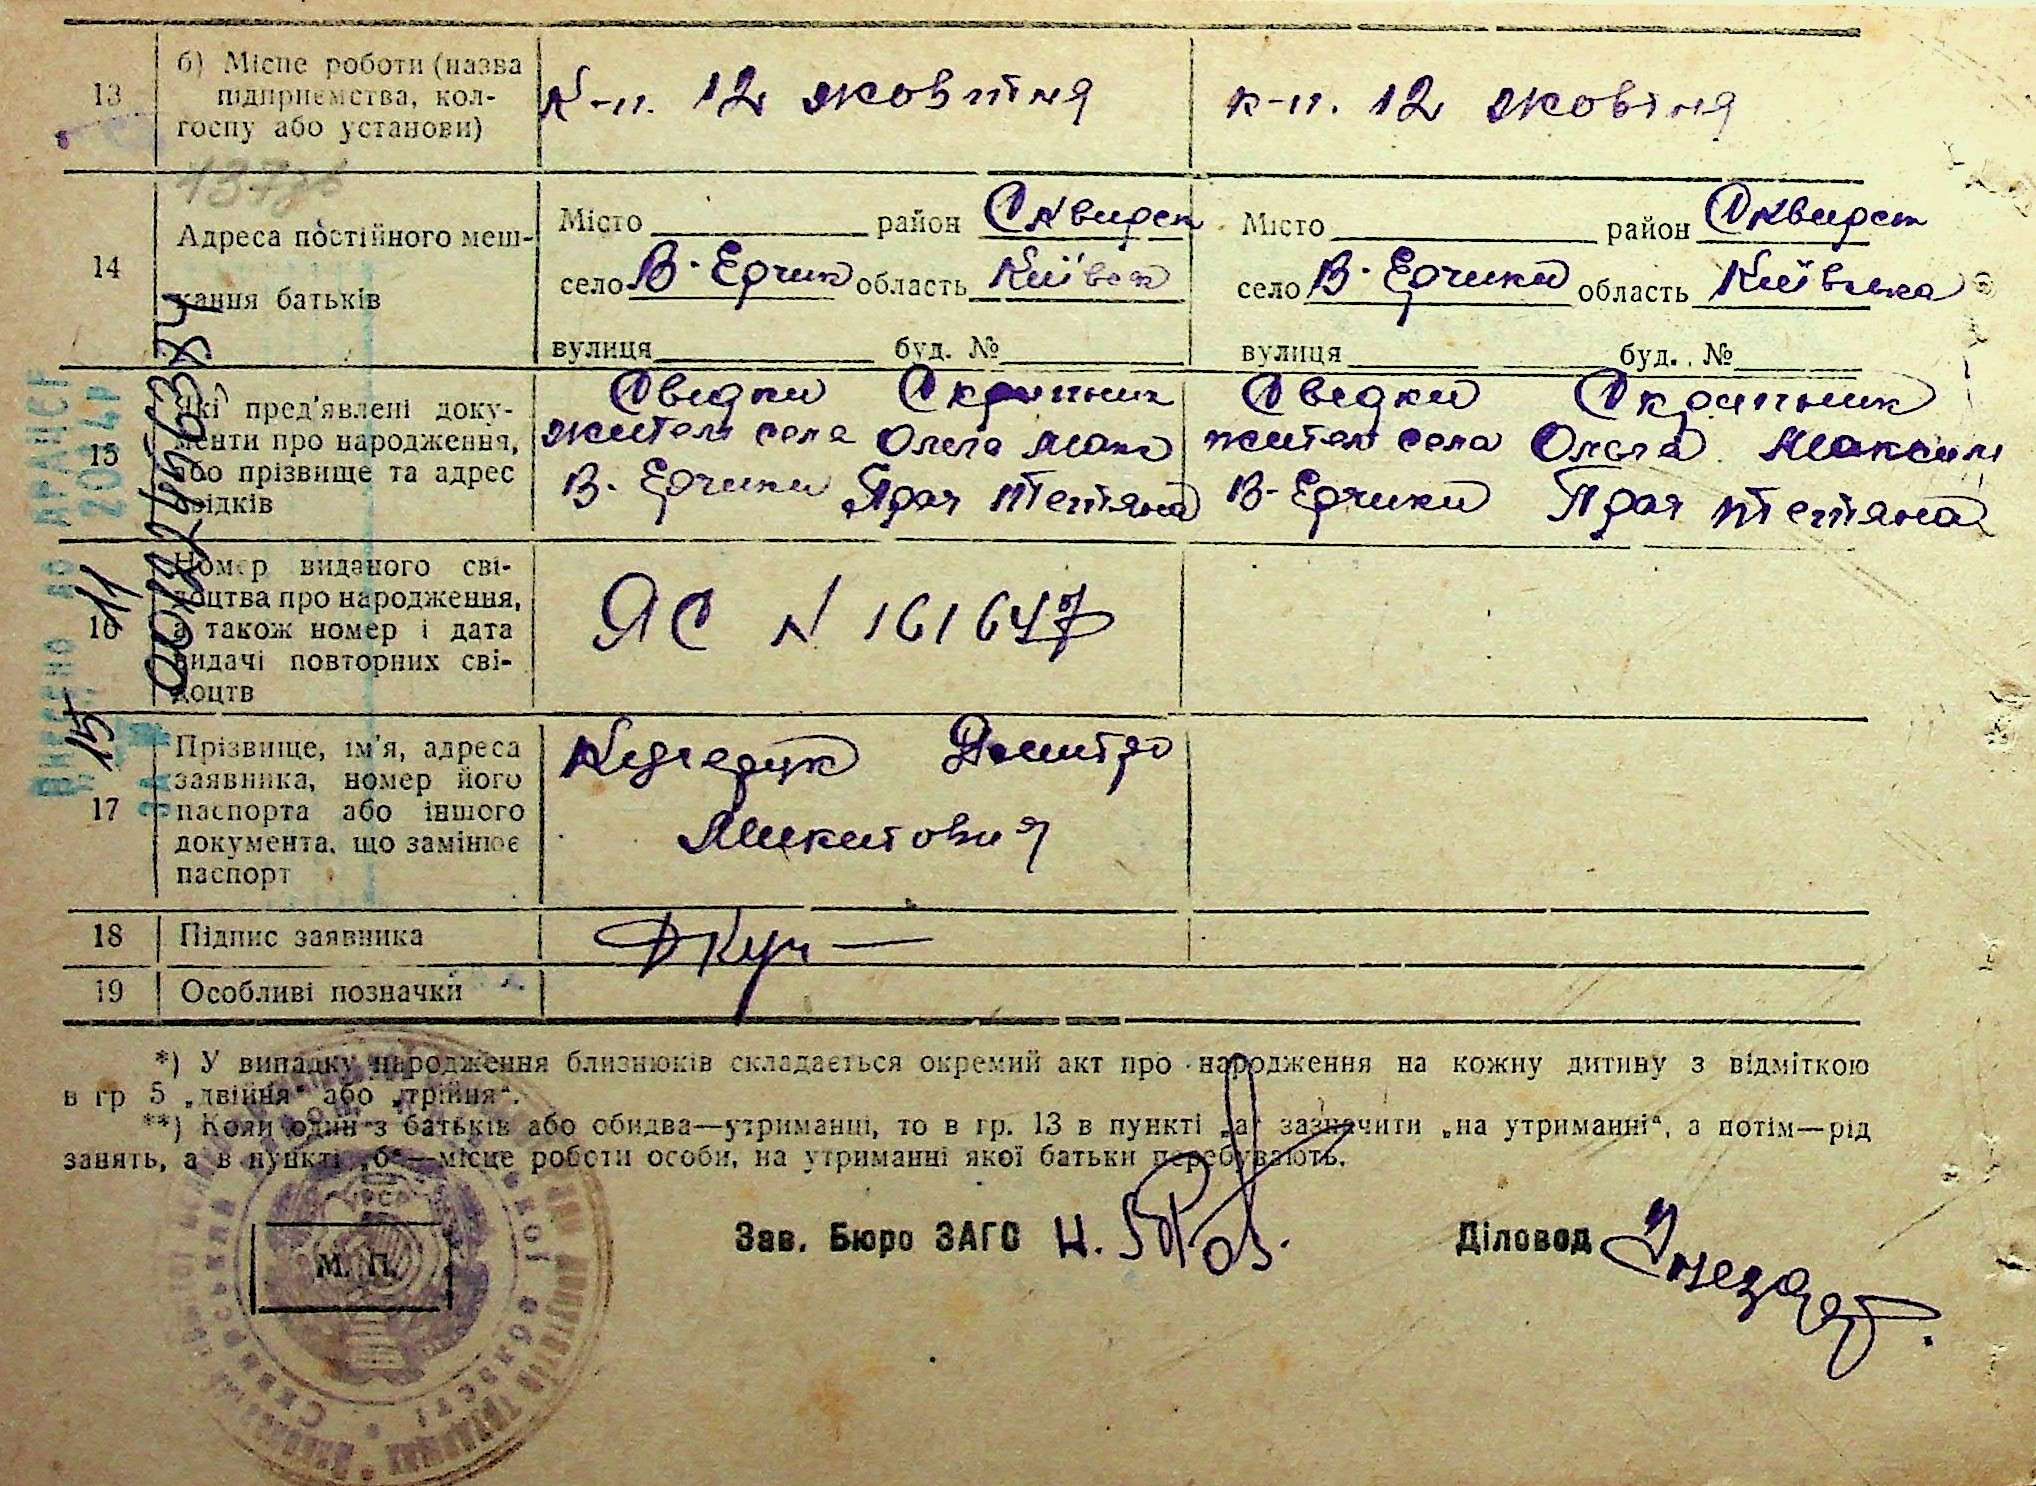 13
б) Місце роботи (назва
підприємства, кол-
госпу або установи)
К-п. 12 жовтня
к-п. 12 жовтня
14
Адреса постійного меш-
кання батьків
Місто район Сквирск
село В-Ерчик область Київск
вулиця буд. №
Місто район Сквирск
село В-Ерчики область Київська
вулиця буд. №
15
Які пред'явлені доку-
менти про народження,
або прізвище та адрес
свідків
Сведки Скрипник
жителі села Ольга Макс
В-Ерчики Прач Тетяна
Сведки Скрипник
жителі села Ольга Максим
В-Ерчики Прач Тетяна
16
Номер виданого сві-
доцтва про народження,
а також номер і дата
видачі повторних сві-
доцтв
ЯС N 161647
17
Прізвище, ім'я, адреса
заявника, номер його
паспорта або іншого
документа, що замінює
паспорт
Дмитро
Микитович
18
Підпис заявника
19
Особливі позначки
*) У випадку народження близнюків складається окремий акт про народження на кожну дитину з відміткою
в гр 5 „двійня“ або „трійня“.
**) Коли один з батьків або обидва—утриманці, то в гр. 13 в пункті „а“ зазначити „на утриманні“, а потім—рід
занять, а в пункті „б“—місце роботи особи, на утриманні якої батьки перебувають.
М. П.
Зав. Бюро ЗАГС
Діловод
Внесено до ДРАЦСГ
15 11 2014р